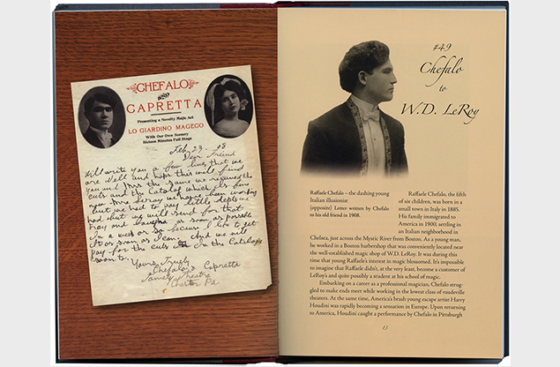 CHEFALO
AND
CAPRETTA
Presenting a Novelty Magic Act
LO GIARDINO MAGECO
With Our Own Scenery
Sixteen Minutes Full Stage
Feb 29 - 08
Dear Friend
Will write you a few lines that we
are Well and hope this will find
you and Mrs the same we received the
cuts and the Catalog which
now Mrs Leroy we havent been working
but we had to pay little debts
and what we will send for that
tray and as soon as possible
in a week or so because I like to get
it as soon as I can and we will
pay for the cuts in the Catalog
Yours Truly
Chefalo & Capretta
Family Theatre
Pa
#49
Chefalo
to
W.D. LeRoy
Raffaele Chefalo – the dashing young
Italian illusionist
(opposite) Letter written by Chefalo
to his old friend in 1908.
Raffaele Chefalo, the fifth
of six children, was born in a
small town in Italy in 1885.
His family immigrated to
America in 1900, settling in
an Italian neighborhood in
Chelsea, just across the Mystic River from Boston. As a young man,
he worked in a Boston barbershop that was conveniently located near
the well-established magic shop of W.D. LeRoy. It was during this
time that young Raffaele's interest in magic blossomed. It's impossible
to imagine that Raffaele didn't, at the very least, become a customer of
LeRoy's and quite possibly a student at his school of magic.
Embarking on a career as a professional magician, Chefalo strug-
gled to make ends meet while working in the lowest class of vaudeville
theaters. At the same time, America's brash young escape artist Harry
Houdini was rapidly becoming a sensation in Europe. Upon returning
to America, Houdini caught a performance by Chefalo in Pittsburgh